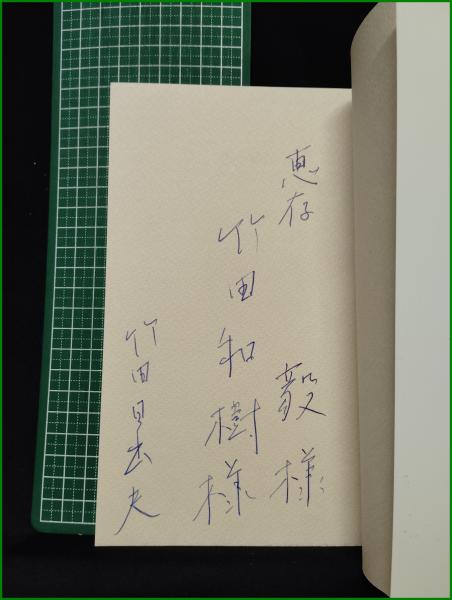 恵存
毅様
竹田和樹様
竹田日出夫